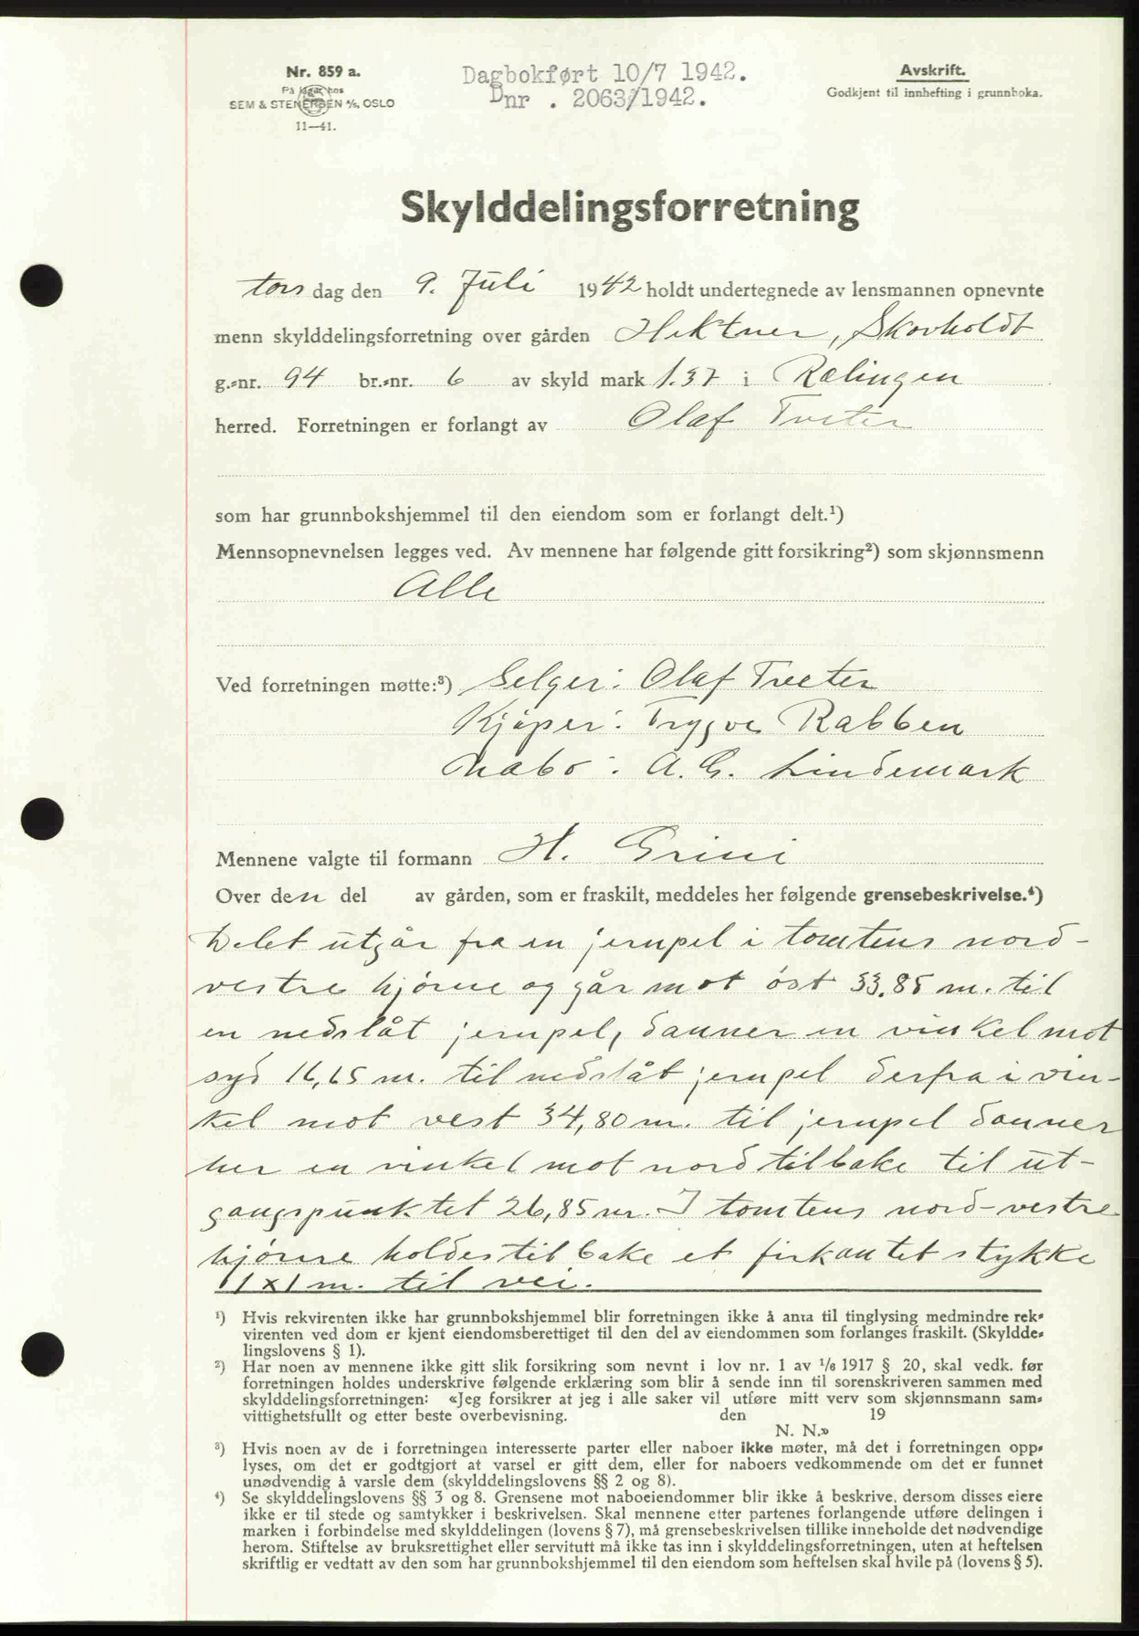 Nr. 859 a.
På lager hos
SEM & STENERSEN A/S, OSLO
11—41.
Dagbokført 10/7 1942.
Dnr . 2063/1942.
Avskrift.
Godkjent til innhefting i grunnboka.
Skylddelingsforretning
tors dag den 9. Juli 1942 holdt undertegnede av lensmannen opnevnte
menn skylddelingsforretning over gården Hektner, Skovholdt
g.-nr. 94 br.-nr. 6 av skyld mark 1.37 i Rælingen
herred. Forretningen er forlangt av Olaf Tveter
som har grunnbokshjemmel til den eiendom som er forlangt delt.¹)
Mennsopnevnelsen legges ved. Av mennene har følgende gitt forsikring²) som skjønnsmenn
Alle
Ved forretningen møtte:³) Selger: Olaf Tveter
Kjøper: Trygve Rabben
Nabo: A. G. Lindemark
Mennene valgte til formann H. Grini
Over den del av gården, som er fraskilt, meddeles her følgende grensebeskrivelse.⁴)
Delet utgår fra en jernpel i tomtens nord-
vestre hjørne og går mot öst 33.85 m. til
en nedslåt jernpel, danner en vinkel mot
syd 16,65 m. til nedslåt jernpel derfra i vin-
kel mot vest 34,80 m. til jernpel danner
her en vinkel mot nord tilbake til ut-
gangspunktet 26,85 m. I tomtens nord-vestre
hjørne holdes tilbake et firkantet stykke
1x1 m. til vei.
¹) Hvis rekvirenten ikke har grunnbokshjemmel blir forretningen ikke å anta til tinglysing medmindre rek-
virenten ved dom er kjent eiendomsberettiget til den del av eiendommen som forlanges fraskilt. (Skyldde-
lingslovens § 1).
²) Har noen av mennene ikke gitt slik forsikring som nevnt i lov nr. 1 av 1/6 1917 § 20, skal vedk. før
forretningen holdes underskrive følgende erklæring som blir å sende inn til sorenskriveren sammen med
skylddelingsforretningen: «Jeg forsikrer at jeg i alle saker vil utføre mitt verv som skjønnsmann sam-
vittighetsfullt og etter beste overbevisning. den 19
N. N.»
³) Hvis noen av de i forretningen interesserte parter eller naboer ikke møter, må det i forretningen opp-
lyses, om det er godtgjort at varsel er gitt dem, eller for naboers vedkommende om det er funnet
unødvendig å varsle dem (skylddelingslovens §§ 2 og 8).
⁴) Se skylddelingslovens §§ 3 og 8. Grensene mot naboeiendommer blir ikke å beskrive, dersom disses eiere
ikke er til stede og samtykker i beskrivelsen. Skal mennene etter partenes forlangende utføre delingen i
marken i forbindelse med skylddelingen (lovens § 7), må grensebeskrivelsen tillike inneholde det nødvendige
herom. Stiftelse av bruksrettighet eller servitutt må ikke tas inn i skylddelingsforretningen, uten at heftelsen
skriftlig er vedtatt av den som har grunnbokshjemmel til den eiendom som heftelsen skal hvile på (lovens § 5).